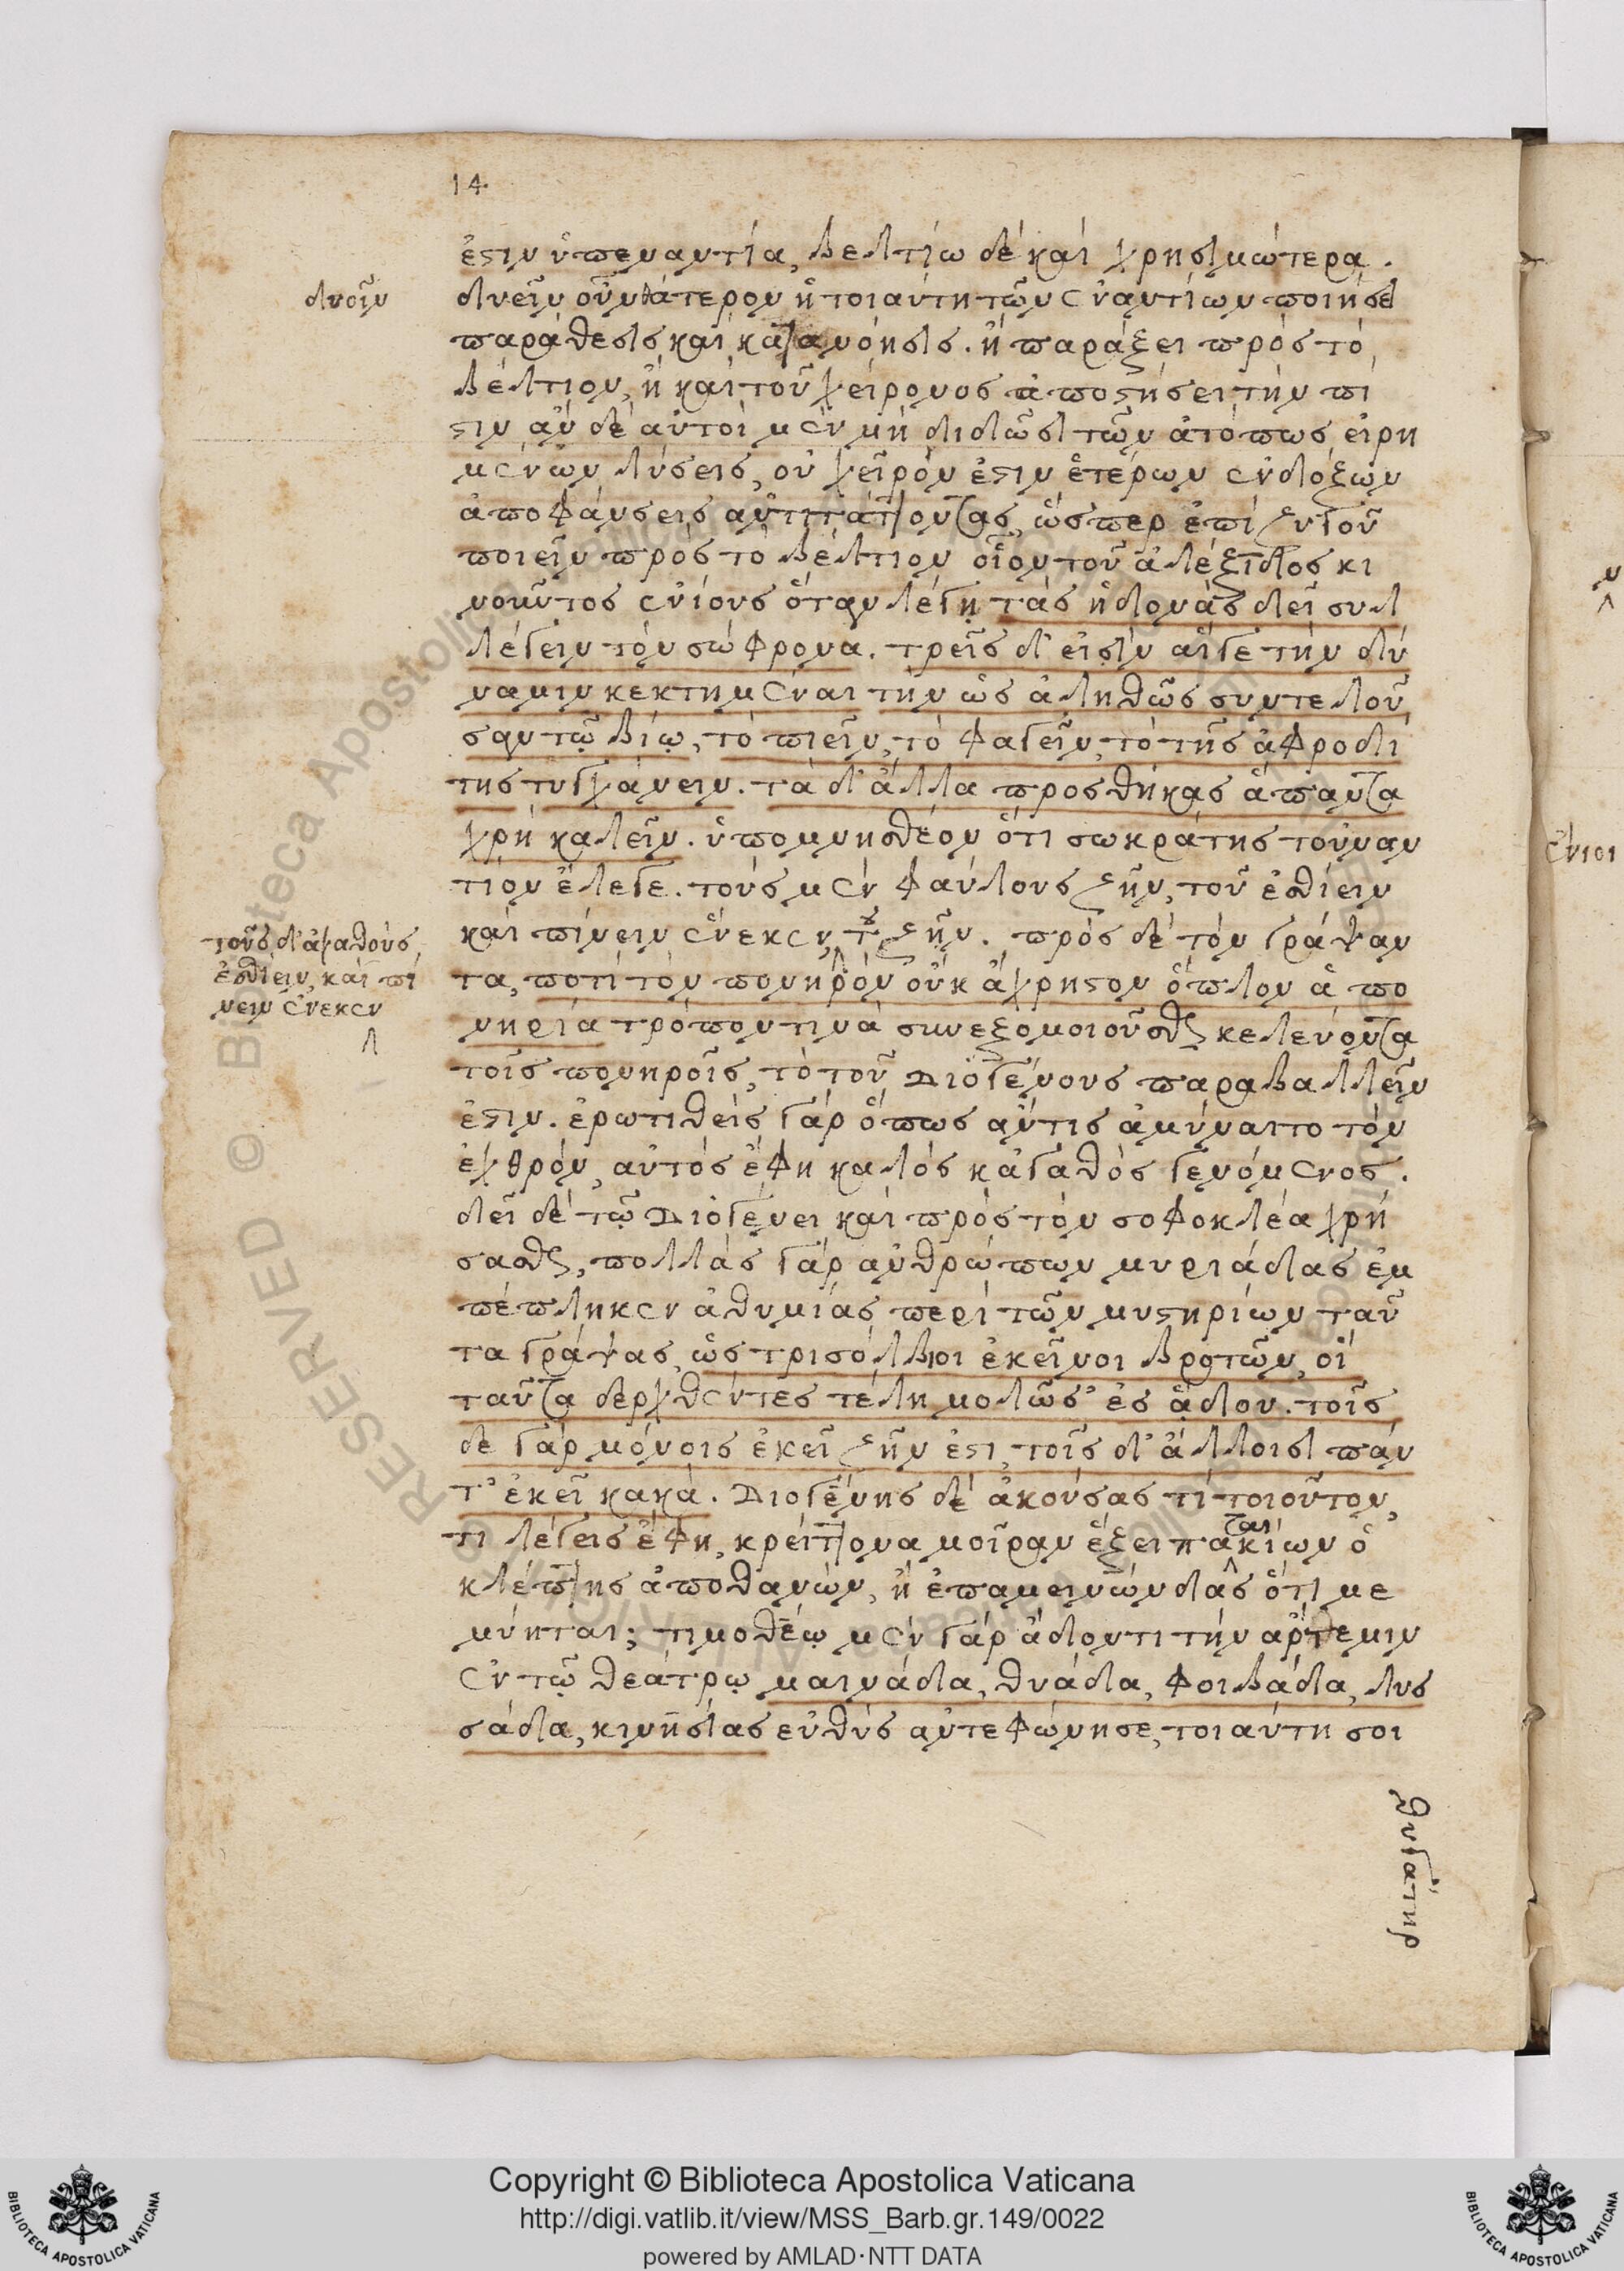 14
ἐστιν ὑπεναντία, βελτίω δὲ καὶ χρησιμώτερα.
δυοῖν
δυεῖν οὖν θάτερον ἡ τοιαύτη τῶν ἐναντίων ποιήσει
παράθεσις καὶ κατανόησις. ἢ παράξει πρὸς τὸ
βέλτιον, ἢ καὶ τοῦ χείρονος ἀποστήσει τὴν πί
στιν ἂν δὲ αὐτοὶ μὲν μὴ διδῶσι τῶν ἀτόπως εἰρη
μένων λύσεις, οὐ χεῖρόν ἐστιν ἑτέρων ἐνδόξων
ἀποφάνσεις ἀντιτάττοντας, ὥσπερ ἐπὶ ζυγοῦ
ποιεῖν πρὸς τὸ βέλτιον οἷον τοῦ ἀλέξιδος κι
νοῦντος ἐνίους ὅταν λέγῃ τὰς ἡδονὰς δεῖ συλ
λέγειν τὸν σώφρονα. τρεῖς δ' εἰσὶν αἵ γε τὴν δύ
ναμιν κεκτημέναι τὴν ὡς ἀληθῶς συντελοῦ
σαν τῷ βίῳ, τὸ πιεῖν, τὸ φαγεῖν, τὸ τῆς ἀφροδί
της τυγχάνειν. τὰ δ' ἄλλα προσθήκας ἅπαντα
χρὴ καλεῖν. ὑπομνηστέον ὅτι σωκράτης τοὐναν
τίον ἔλεγε. τοὺς μὲν φαύλους ζῆν, τοῦ ἐσθίειν
καὶ πίνειν ἕνεκεν, τοῦ ζῆν. πρὸς δὲ τὸν γράψαν
τοὺς δ' ἀγαθοὺς
ἐσθίειν, καὶ πί
νειν ἕνεκεν
τα, ποτὶ τὸν πονηρὸν οὐκ ἄχρηστον ὅπλον ἁ πο
νηρία τρόπον τινὰ συνεξομοιοῦσθαι κελεύοντα
τοῖς πονηροῖς, τὸ τοῦ Διογένους παραβαλλεῖν
ἐστιν. ἐρωτηθεὶς γὰρ ὅπως ἄν τις ἀμύναιτο τὸν
ἐχθρόν, αὐτὸς ἔφη καλὸς κἀγαθὸς γενόμενος.
δεῖ δὲ τῷ Διογένει καὶ πρὸς τὸν σοφοκλέα χρή
σασθαι, πολλὰς γὰρ ἀνθρώπων μυριάδας ἐμ
πέπληκεν ἀθυμίας περὶ τῶν μυστηρίων ταῦ
τα γράψας, ὡς τρισόλβιοι ἐκεῖνοι βροτῶν, οἳ
ταῦτα δερχθέντες τέλη μολῶσ' ἐς ᾅδου. τοῖς
δε γὰρ μόνοις ἐκεῖ ζῆν ἐστι, τοῖς δ' ἄλλοισι πάν
τ' ἐκεῖ κακά. Διογένης δὲ ἀκούσας τι τοιοῦτον,
τι λέγεις ἔφη, κρείττονα μοῖραν ἕξει παταικίων ὁ
κλέπτης ἀποθανὼν, ἢ ἐπαμεινώνδας ὅτι με
μύηται; τιμοθέῳ μὲν γὰρ ἄδοντι τὴν ἄρτεμιν
ἐν τῷ θεάτρῳ μαινάδα, θυάδα, φοιβάδα, λυσ
σάδα, κινησίας εὐθὺς ἀντεφώνησε, τοιαύτη σοι
θυγάτηρ
ἔνιοι
Copyright © Biblioteca Apostolica Vaticana
http://digi.vatlib.it/view/MSS_Barb.gr.149/0022
powered by AMLAD·NTT DATA
BIBLIOTECA APOSTOLICA VATICANA
BIBLIOTECA APOSTOLICA VATICANA